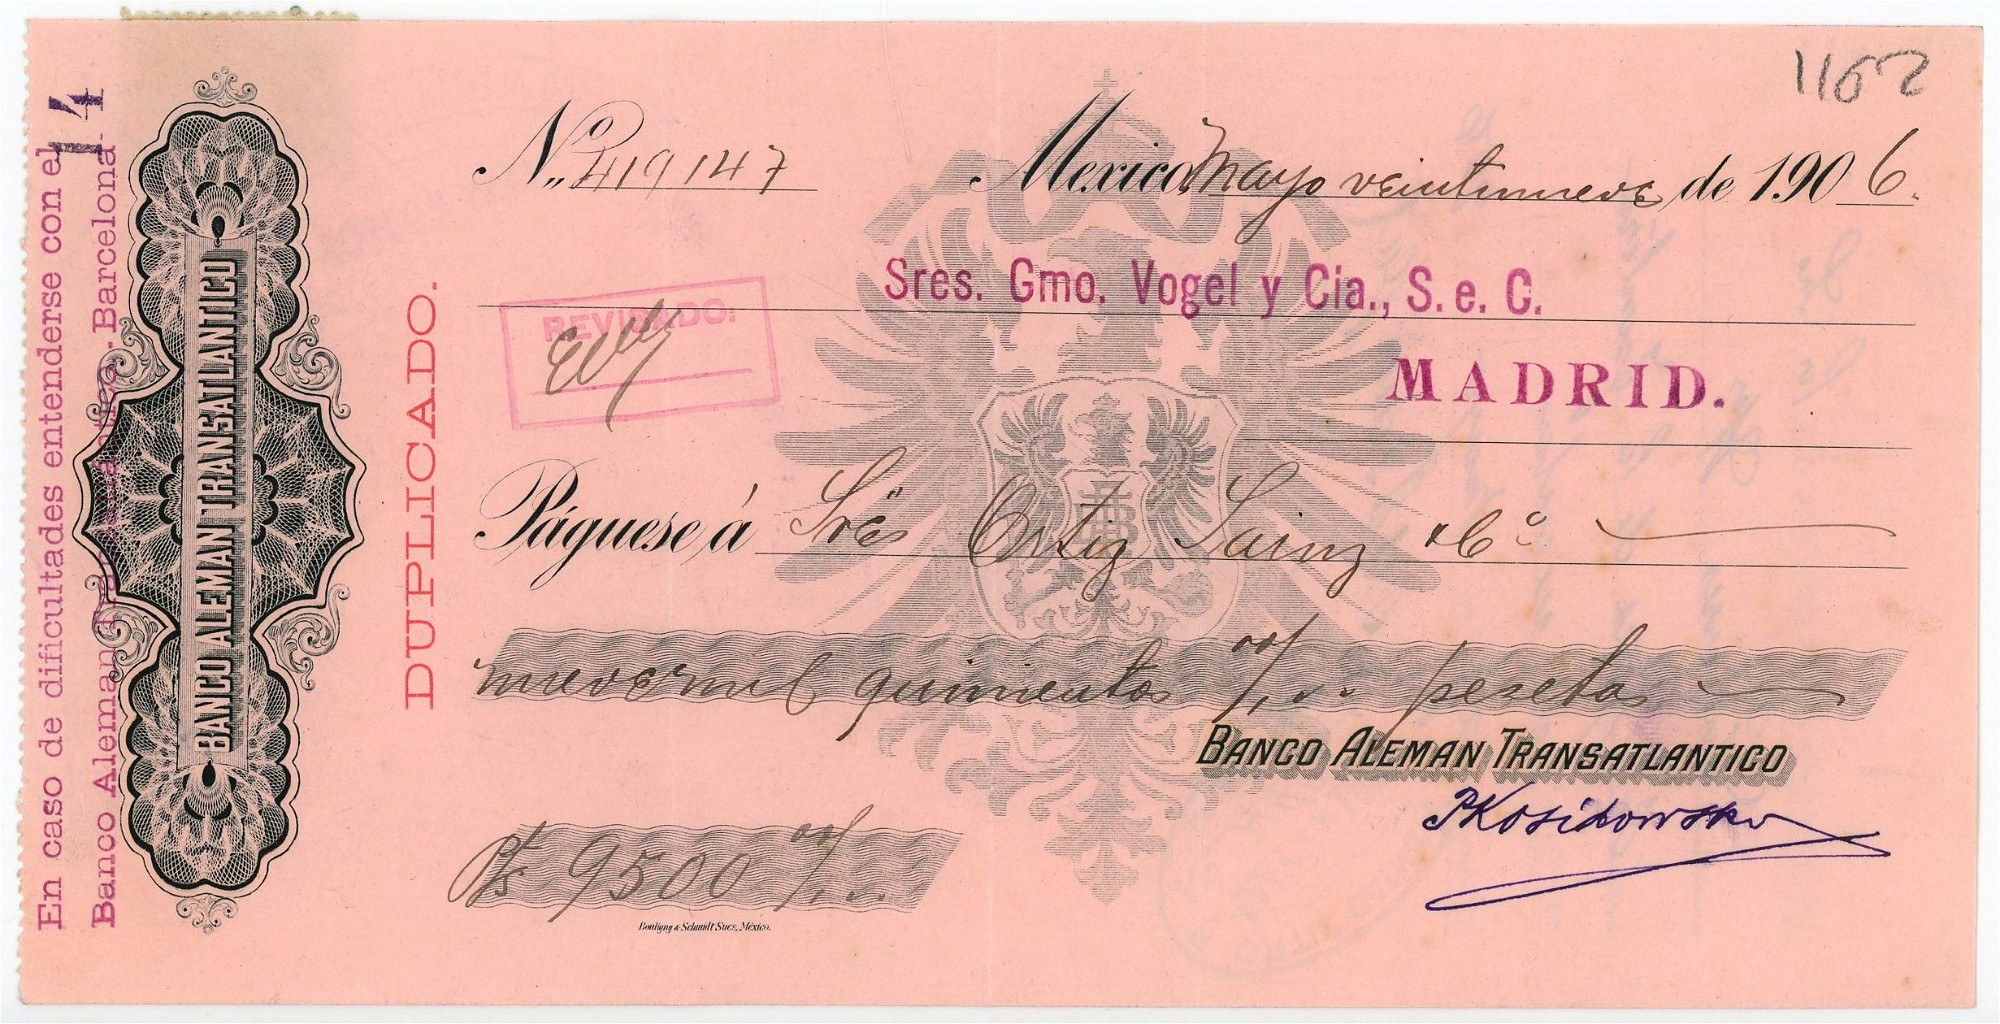 1152
Nº 419147
Mexico Mayo veintinueve de 1.906.
Sres. Gmo. Vogel y Cia., S. e. C.
MADRID.
REVISADO.
Páguese á Sres Ortiz Sainz & Cº
nuevemil quinientos 00/ pesetas
BANCO ALEMAN TRANSATLANTICO
PKosidowski
Pts 9500 00/
Bouligny & Schmidt Sucs, México.
DUPLICADO.
BANCO ALEMAN TRANSATLANTICO
14
En caso de dificultades entenderse con el
Banco Aleman Transatlantico. Barcelona